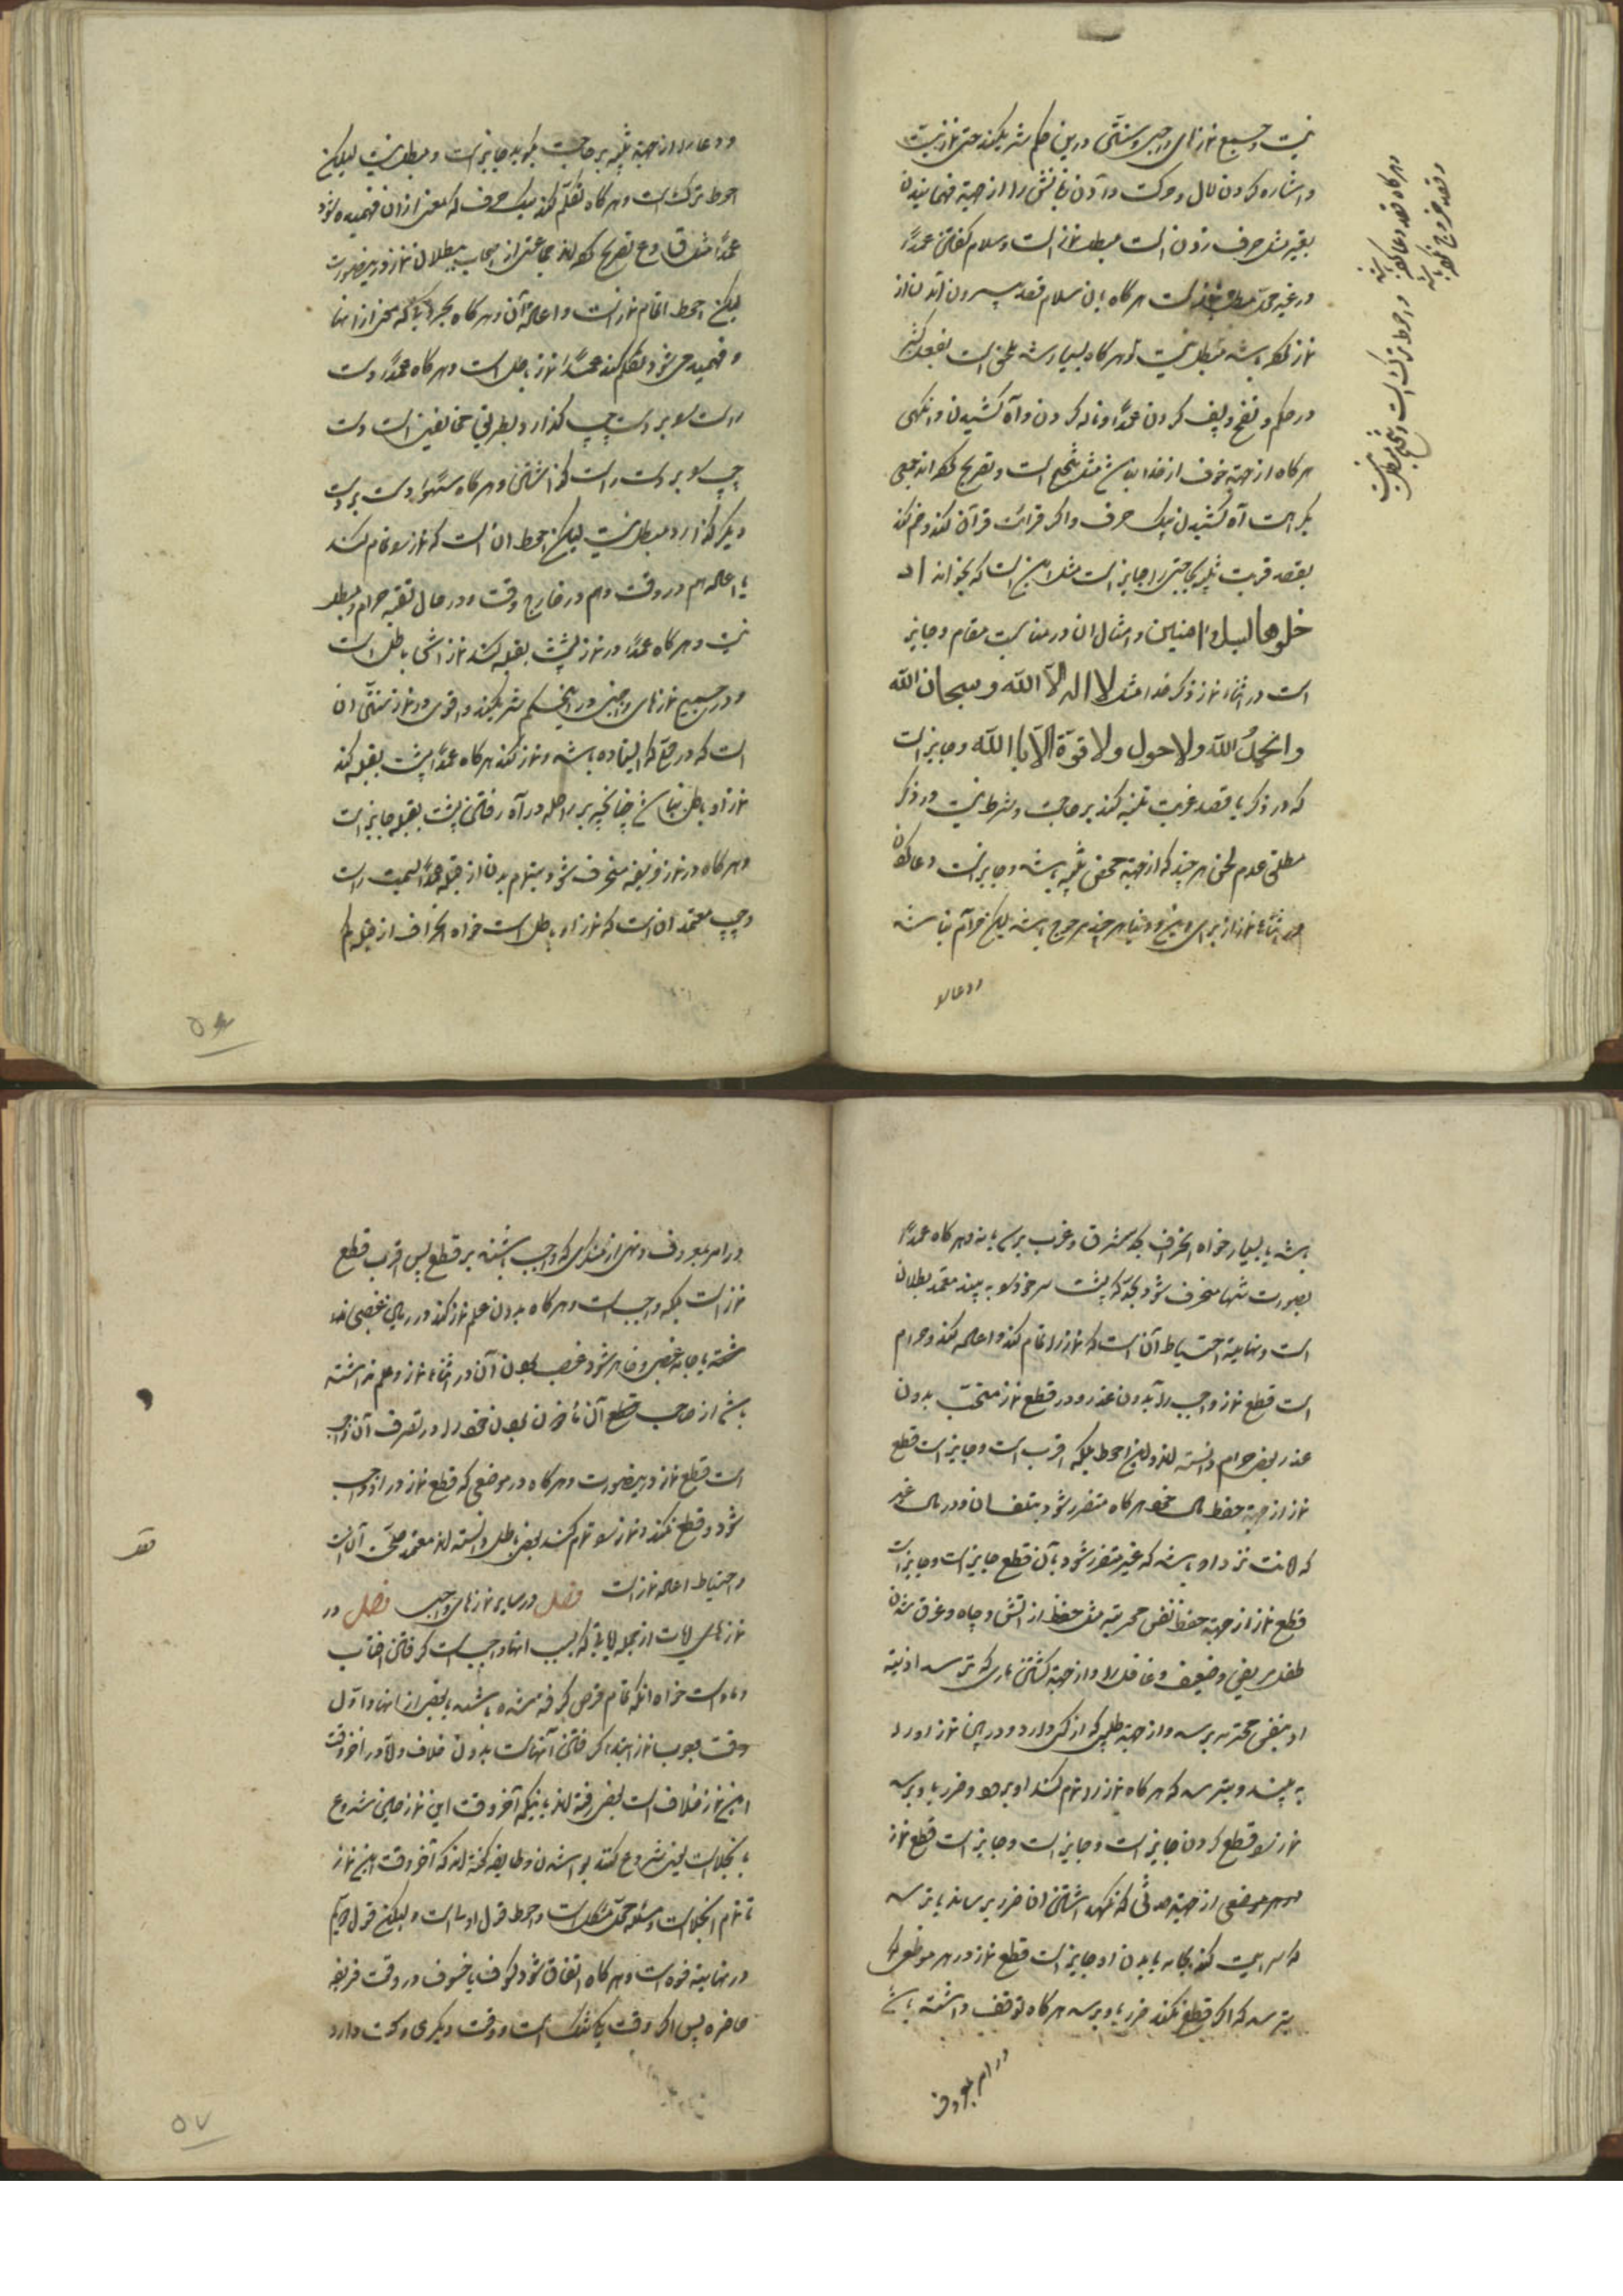 نیست و جمیع نمازهای واجبی و سنتی درین حکم شریکند حتی نماز میت
و اشاره کردن لال و حرکت دادن زبانش را از جهة فهمانیدن
بغیر مثل حرف زدن است مبطل نماز است و سلام گفتن عمداً
در غیر محل مبطل نماز است هرگاه باین سلام قصد بیرون آمدن از
نماز نکرده باشد مبطل نیست و هرگاه بسیار باشد ملحق است بفعل کثیر
در حکم و نفخ و پف کردن عمداً و ناله کردن و آه کشیدن و
هرگاه از جهة خوف از خدا باشد مثل تنحنح است و تصریح کرده اند جمعی
بکراهت آه کشیدن بیک حرف و اگر قرائت قرآن کند و ضم کند
بقصد قربت تنبیه بجا جایز است مثل این است که بخواند اد
خلوها بسلام امنین و امثال ان در مناسبت مقام و جایز
است در اثناء نماز ذکر خدا مثل لا اله الا الله و سبحان الله
والحمد لله ولا حول ولا قوة الا بالله و جایز است
که در ذکر با قصد قربت تنبیه کند بر حاجت و شرط نیست در ذکر
مطلق عدم لحن هر چند که از جهة محض تنبیه باشد و جایز است دعا کردن
در اثناء نماز از برای دین و دنیا هر چند مرجوح باشد لیکن حرام نباشد
و دعا را
و هر گاه قصد دعا کرده باشد
و قصد خروج نکرده باشد
و احوط ترک است و تنحنح مبطل نیست
و دعا را از جهة تنبیه بر حاجت بگوید جایز است و مبطل نیست لیکن
احوط ترک است و هرگاه تکلم کند بیک حرف که معنی ازان فهمیده شود
عمداً مثل ق و ع تصریح کرده اند جماعتی از اصحاب ببطلان نماز درینصورت
لیکن احوط اتمام نماز است و اعاده آن و هرگاه بحرفی که معنی از انها
و فهمیده می شود تکلم کند عمداً نماز باطل است و هرگاه عمداً دست
راست را بر دست چپ گذارد بطریقی مخالفین است و دست
چپ را بر دست راست گذاشتن و هرگاه سهواً دست بر دست
دیگر گذارد مبطل نیست لیکن احوط ان است که نماز را تمام کند
با اعاده هم در وقت و هم در خارج وقت و در حال تقیه حرام و مبطل
نیست و هرگاه عمداً در نماز پشت بقبله کند نماز اش باطل است
و در جمیع نمازهای واجبی در اینحکم شریکند و اقوی در نماز سنتی ان
است که در حق که ایستاده باشد و نماز کند هرگاه عمداً پشت بقبله کند
نماز او باطل نباشد چنانچه بر راحله در راه رفتن پشت بقبله جایز است
و هرگاه در نماز فریضه منحرف شود بتمام بدن از قبله عمداً بسمت راست
و چپ معتمد ان است که نماز او باطل است خواه انحراف از قبله کم
۵۶
باشد یا بسیار خواه انحراف بحد مشرق و مغرب برسد یا نه و هرگاه عمداً
بصورت تنها منحرف شود بحدی که پشت سر خود را به بیند معتمد بطلان
است و نهایة احتیاط آن است که نماز را تمام کند و اعاده کند و حرام
است قطع نماز واجب را بدون عذر و در قطع نماز سنتی بدون
عذر بعضی حرام دانسته اند و این احوط بلکه اقرب است و جایز است قطع
نماز از جهة حفظ مال خود هرگاه متضرر شود بتلف ان و در مال غیر
که امانت نزد او باشد که غیر متضرر شود بآن قطع جایز است و جایز است
قطع نماز از جهة حفظ نفس محرمه مثل حفظ از آتش و چاه و غرق شدن
طفل و مریض و ضعیف و غافل را و از جهة کشتن ماری که بترسد اذیته
او بنفس محترم برسد و از جهة طلبی که از کسی دارد و در میان نماز او را
به بیند و بترسد که هرگاه نماز را تمام کند او برود و ضرر باو برسد
نماز را قطع کردن جایز است و جایز است و جایز است قطع نماز
در هر موضعی از جهة حدثی که نگهداشتن ان ضرر برساند یا بترسد
که سرایت کند بجامه یا بدن او جایز است قطع نماز در هر موضعی که
بترسد که اگر قطع نکند ضرر باو برسد هرگاه توقف داشته باشد
در امر بمعروف
در امر بمعروف و نهی از منکری که واجب باشد بر قطع پس اقرب قطع
نماز است بلکه واجب است و هرگاه بدون علم نماز کند در زمین غصبی
یا جامه غصبی و ظاهر شود غصب بودن آن در اثناء نماز و علم نداشته
باشد از صاحب قطع آن مأذون بودن خود را در تصرف آن واجب
است قطع نماز درینصورت و هرگاه در موضعی که قطع نماز در او واجب
شود و قطع نکند و نماز را تمام کند بعضی باطل دانسته اند معتمد صحت آن است
و احتیاط اعاده نماز است فصل در سایر نمازهای واجب فصل در
نمازهای آیات از جمله آیاتی که بسبب انها واجب است گرفتن آفتاب
و ماه است خواه انکه تمام قرص گرفته شده باشد یا بعضی از انها و اول
وقت وجوب نماز ابتدا گرفتن آنهاست بدون خلاف و در آخر وقت
این نماز خلاف است بعضی رفته اند باینکه آخر وقت این نماز حین شروع
بانجلاست یعنی شروع کند بواشدن و طایفه گفته اند که آخر وقت این نماز
تا تمام انجلاست و مسئله محل مشکل است و احوط قول اول است و لیکن قول دویم
در نهایة قوه است و هرگاه اتفاق شود کسوف یا خسوف در وقت فریضه
حاضره پس اگر وقت یک تنگ است و وقت دیگری وسعت دارد
۵۷